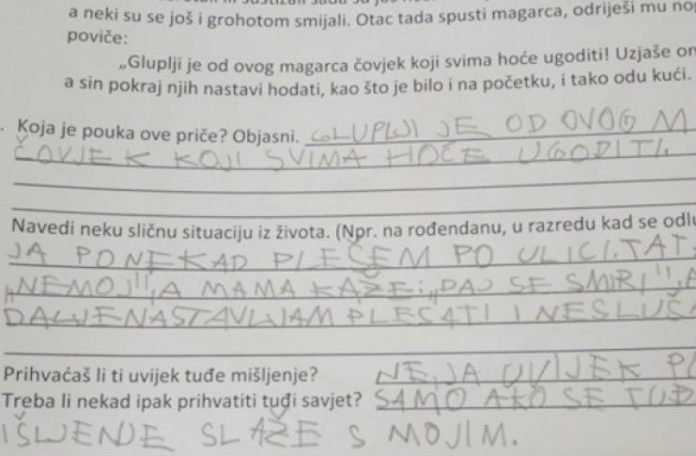 a neki su se još i grohotom smijali. Otac tada spusti magarca, odriješi mu no
poviče:
„Gluplji je od ovog magarca čovjek koji svima hoće ugoditi! Uzjaše on
a sin pokraj njih nastavi hodati, kao što je bilo i na početku, i tako odu kući.
. Koja je pouka ove priče? Objasni. GLUPLJI JE OD OVOG M
ČOVJEK KOJI SVIMA HOĆE UGODITI.
Navedi neku sličnu situaciju iz života. (Npr. na rođendanu, u razredu kad se odlu
JA PONEKAD PLEŠEM PO ULICI. TAT
„NEMOJ", A MAMA KAŽE: „DAJ SE SMIRI",
DALJE NASTAVLJAM PLESATI I NE SLUŠ
Prihvaćaš li ti uvijek tuđe mišljenje? NE, JA UVIJEK
Treba li nekad ipak prihvatiti tuđi savjet? SAMO AKO SE TUĐ
IŠLJENJE SLAŽE S MOJIM.